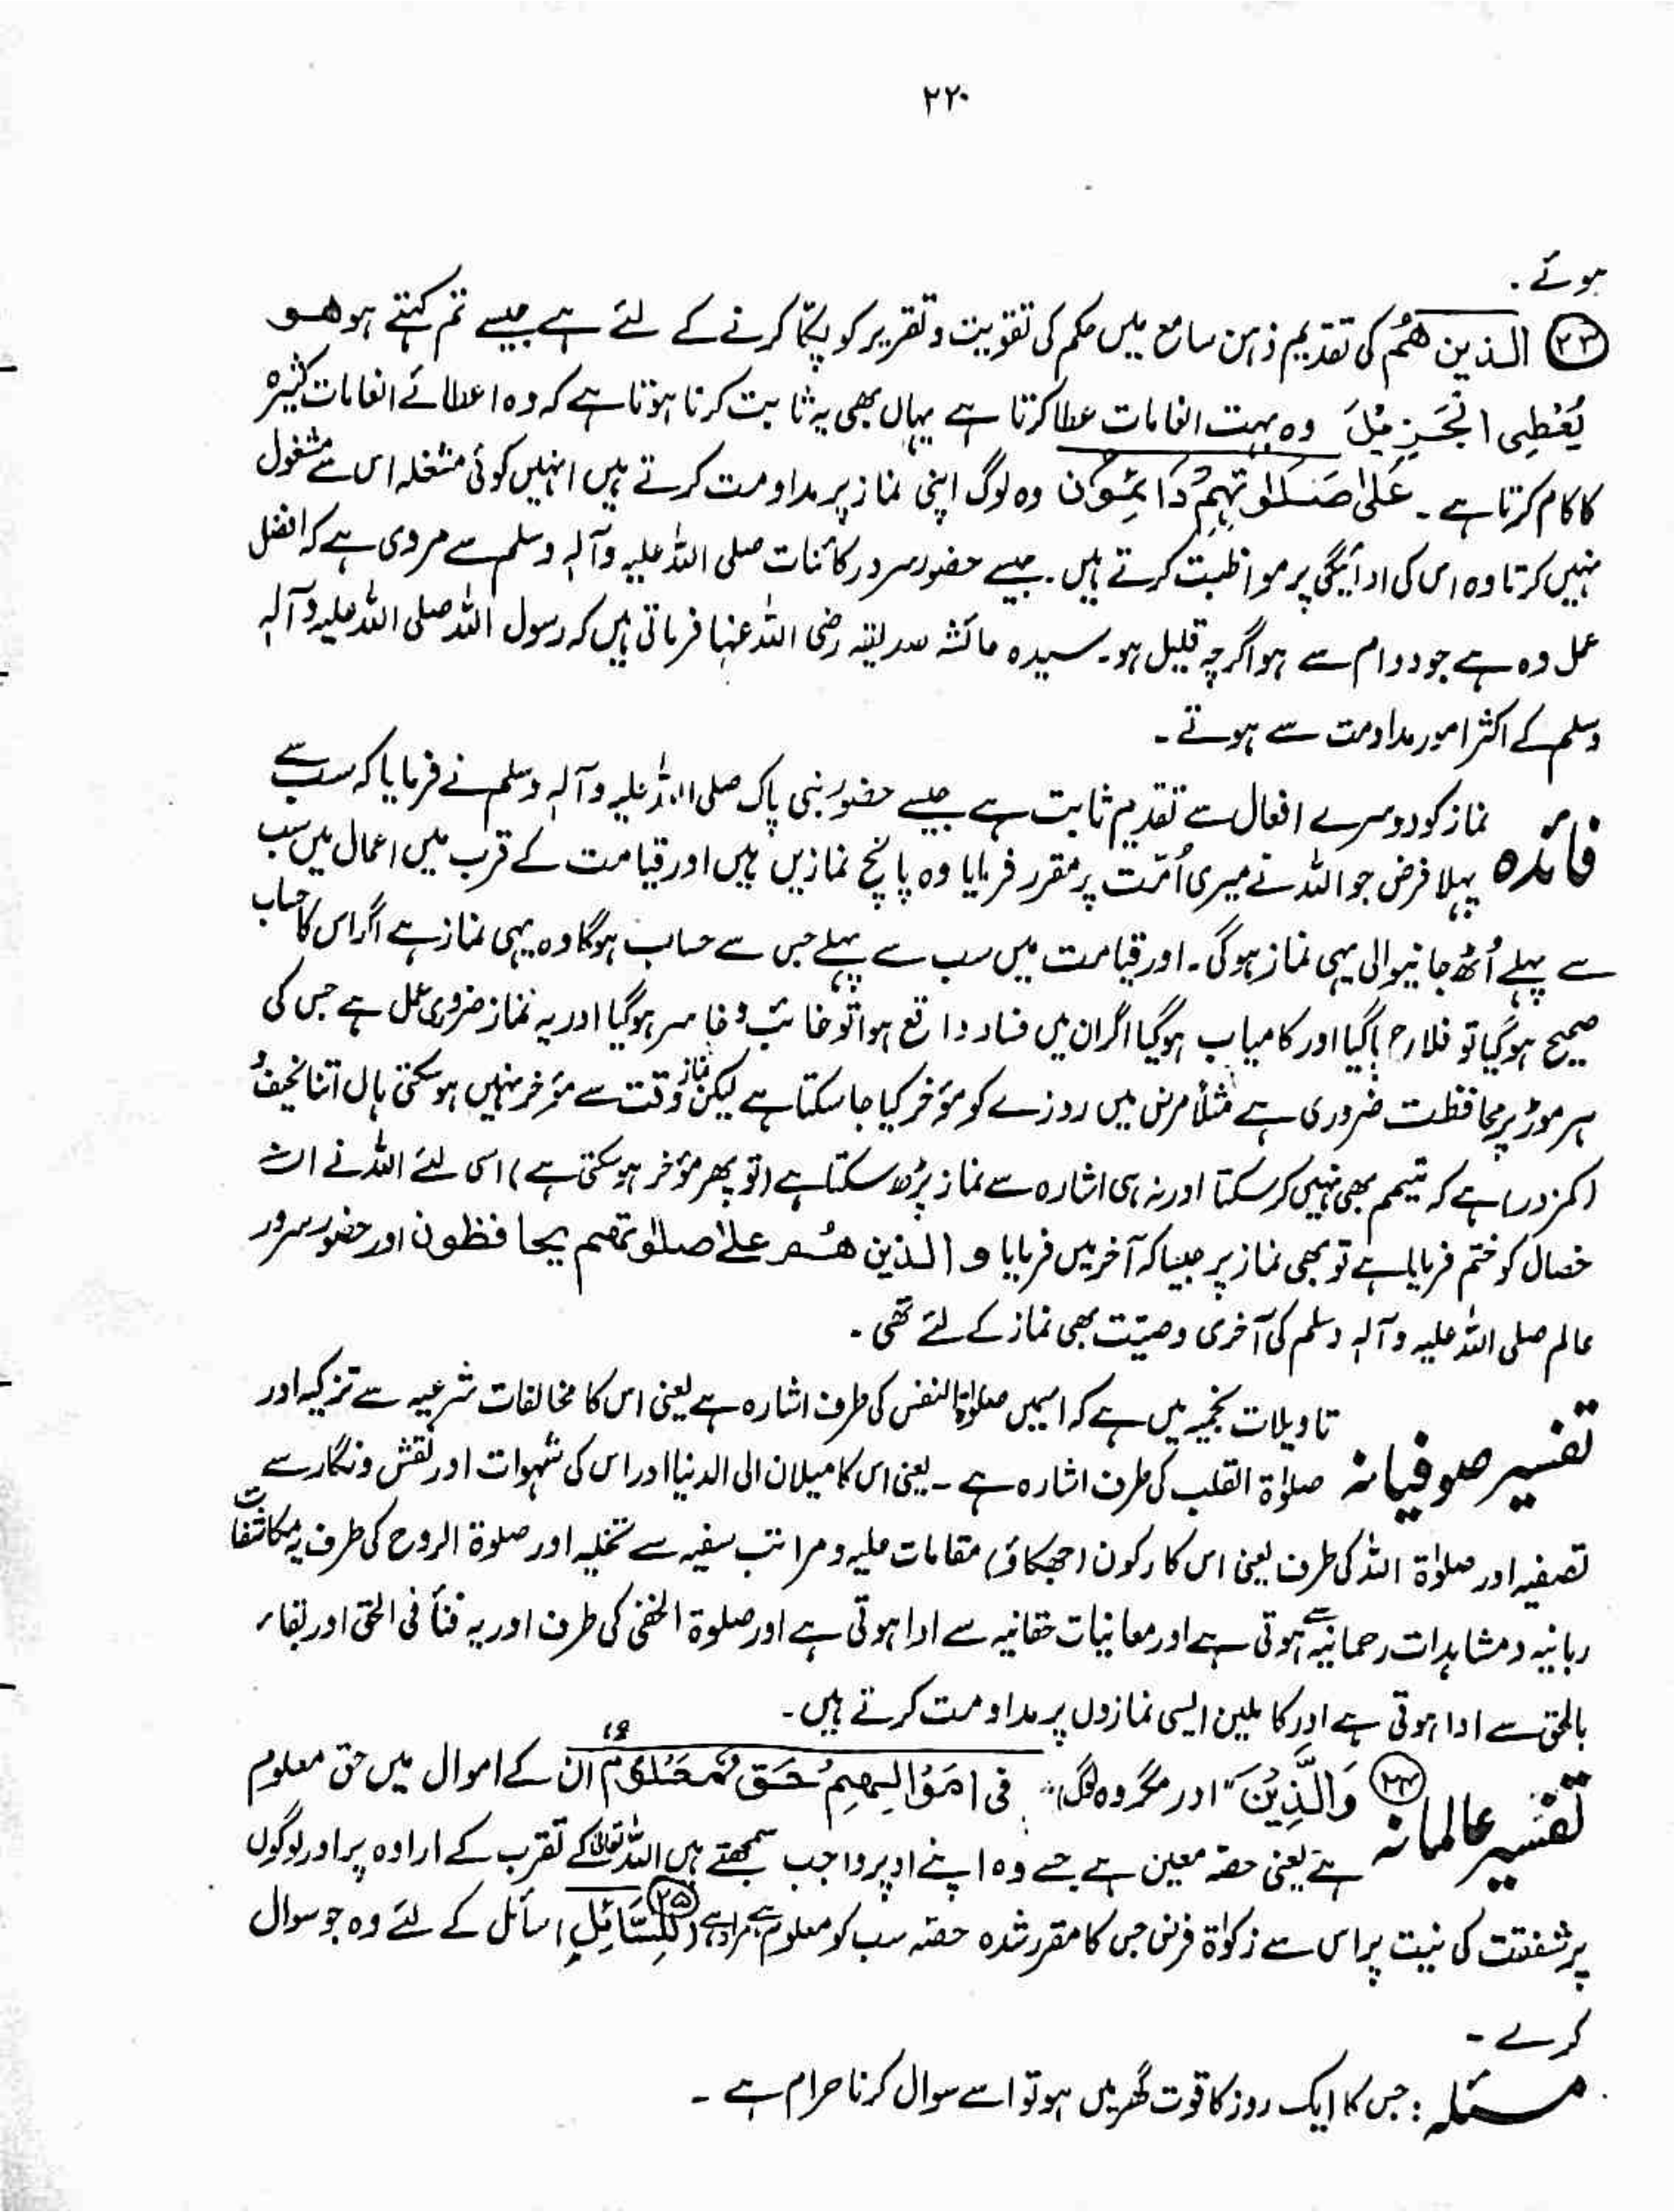 ۲۲۰
ہوئے۔
۲۳ الذین ھُم کی تقدیم ذہن سامع میں حکم کی تقویت و تقریر کو پکّا کرنے کے لئے ہے جیسے تم کہتے ہو ھو
یُعْطِی الْجَزِیْلَ وہ بہت انعامات عطا کرتا ہے یہاں بھی یہ ثابت کرنا ہوتا ہے کہ وہ اعطائے انعامات کثیرہ
کا کام کرتا ہے۔ عَلیٰ صَلٰوتِہِمْ دَائِمُوْنَ وہ لوگ اپنی نماز پر مداومت کرتے ہیں انہیں کوئی مشغلہ اس سے مشغول
نہیں کرتا وہ اس کی ادائیگی پر مواظبت کرتے ہیں۔ جیسے حضور سرور کائنات صلی اللہ علیہ وآلہٖ وسلم سے مروی ہے کہ افضل
عمل وہ ہے جو دوام سے ہو اگرچہ قلیل ہو۔ سیدہ عائشہ صدیقہ رضی اللہ عنہا فرماتی ہیں کہ رسول اللہ صلی اللہ علیہ وآلہٖ
وسلم کے اکثر امور مداومت سے ہوتے۔
نماز کو دوسرے افعال سے تقدیم ثابت ہے جیسے حضور نبی پاک صلی اللہ علیہ وآلہٖ وسلم نے فرمایا کہ سب سے
فائدہ پہلا فرض جو اللہ نے میری اُمّت پر مقرر فرمایا وہ پانچ نمازیں ہیں اور قیامت کے قرب میں اعمال میں سب
سے پہلے اُٹھ جانیوالی یہی نماز ہوگی۔ اور قیامت میں سب سے پہلے جس سے حساب ہوگا وہ یہی نماز ہے اگر اس کا حساب
صحیح ہوگیا تو فلاح پاگیا اور کامیاب ہوگیا اگر ان میں فساد واقع ہوا تو خائب و خاسر ہوگیا اور یہ نماز ضروری عمل ہے جس کی
ہر موڑ پر محافظت ضروری ہے مثلاً مرض میں روزے کو مؤخر کیا جاسکتا ہے لیکن نماز وقت سے مؤخر نہیں ہوسکتی ہاں اتنا نحیف و
(کمزور) ہے کہ تیمم بھی نہیں کرسکتا اور نہ ہی اشارہ سے نماز پڑھ سکتا ہے (تو پھر مؤخر ہوسکتی ہے) اسی لئے اللہ نے ان
خصال کو ختم فرمایا ہے تو بھی نماز پر جیسا کہ آخر میں فرمایا و الذین ھُم علیٰ صلٰوتھم یحافظون اور حضور سرور
عالم صلی اللہ علیہ وآلہٖ وسلم کی آخری وصیّت بھی نماز کے لئے تھی۔
تاویلات نجمیہ میں ہے کہ اسمیں صلوٰۃ النفس کی طرف اشارہ ہے یعنی اس کا مخالفات شرعیہ سے تزکیہ اور
تفسیر صوفیانہ صلوٰۃ القلب کی طرف اشارہ ہے۔ یعنی اس کا میلان الی الدنیا اور اس کی شہوات اور نقش ونگار سے
تصفیہ اور صلوٰۃ اللہ کی طرف یعنی اس کا رکون (جھکاؤ) مقامات علیہ و مراتب سفیہ سے تخلیہ اور صلوۃ الروح کی طرف یہ مکاشفات
ربانیہ و مشاہدات رحمانیہ سے ہوتی ہے اور معانیات حقانیہ سے ادا ہوتی ہے اور صلوۃ الخفی کی طرف اور یہ فنأ فی الحق اور بقاء
بالحق سے ادا ہوتی ہے اور کاملین ایسی نمازوں پر مداومت کرتے ہیں۔
تفسیر عالمانہ ۲۴ وَالَّذِیْنَ اور مگر وہ لوگ فِی اَمْوَالِہِمْ حَقٌّ مَّعْلُوْمٌ ان کے اموال میں حق معلوم
ہے یعنی حصّہ معین ہے جسے وہ اپنے اوپر واجب سمجھتے ہیں اللہ تعالیٰ کے تقرب کے ارادہ پر اور لوگوں
پر شفقت کی نیت پر اس سے زکوٰۃ فرض جس کا مقرر شدہ حصّہ سب کو معلوم ہے مراد ہے ۲۵ (لِلسَّائِلِ) سائل کے لئے وہ جو سوال
کرے۔
مسئلہ: جس کا ایک روز کا قوت گھر میں ہو تو اسے سوال کرنا حرام ہے۔